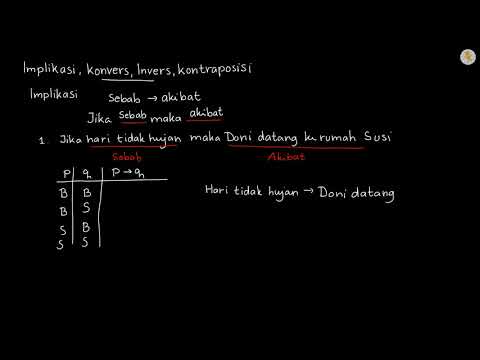 Implikasi, Konvers, Invers, kontraposisi
Implikasi
Sebab → akibat
Jika Sebab maka akibat
1. Jika hari tidak hujan maka Doni datang ke rumah Susi
Sebab Akibat
P q P → q
B B
B S
S B
S S
Hari tidak hujan → Doni datang